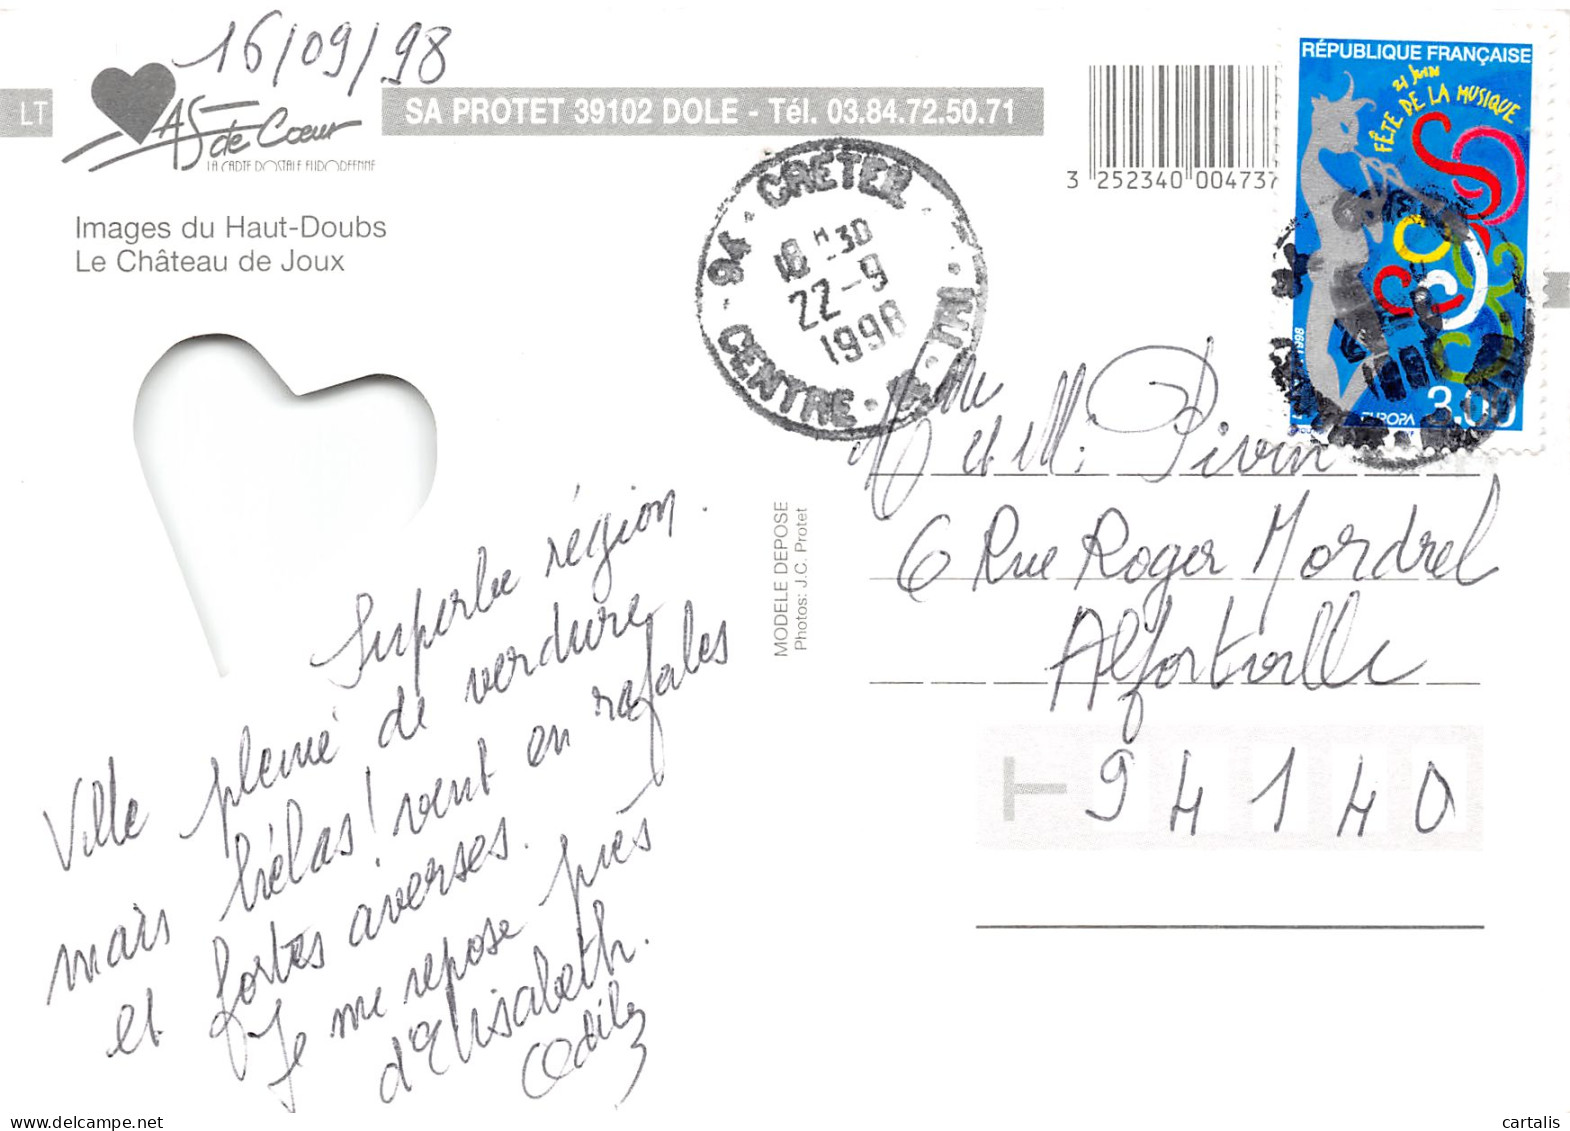 16/09/98
LT
As de Cœur
LA CARTE POSTALE EUROPEENNE
SA PROTET 39102 DOLE - Tél. 03.84.72.50.71
3 252340 004737
Images du Haut-Doubs
Le Château de Joux
94 · CRETEIL
18 H 30
22 - 9
1998
CENTRE
RÉPUBLIQUE FRANÇAISE
21 JUIN
FÊTE DE LA MUSIQUE
1998
EUROPA
3,00
MODELE DEPOSE
Photos: J.C. Protet
Superbe région.
Ville pleine de verdure
mais hélas! vent en rafales
et fortes averses.
Je me repose près
d'Elisabeth.
Odile
Mme et M. Pivin
6 Rue Roger Mordrel
Alfortville
T 94140
cartalis